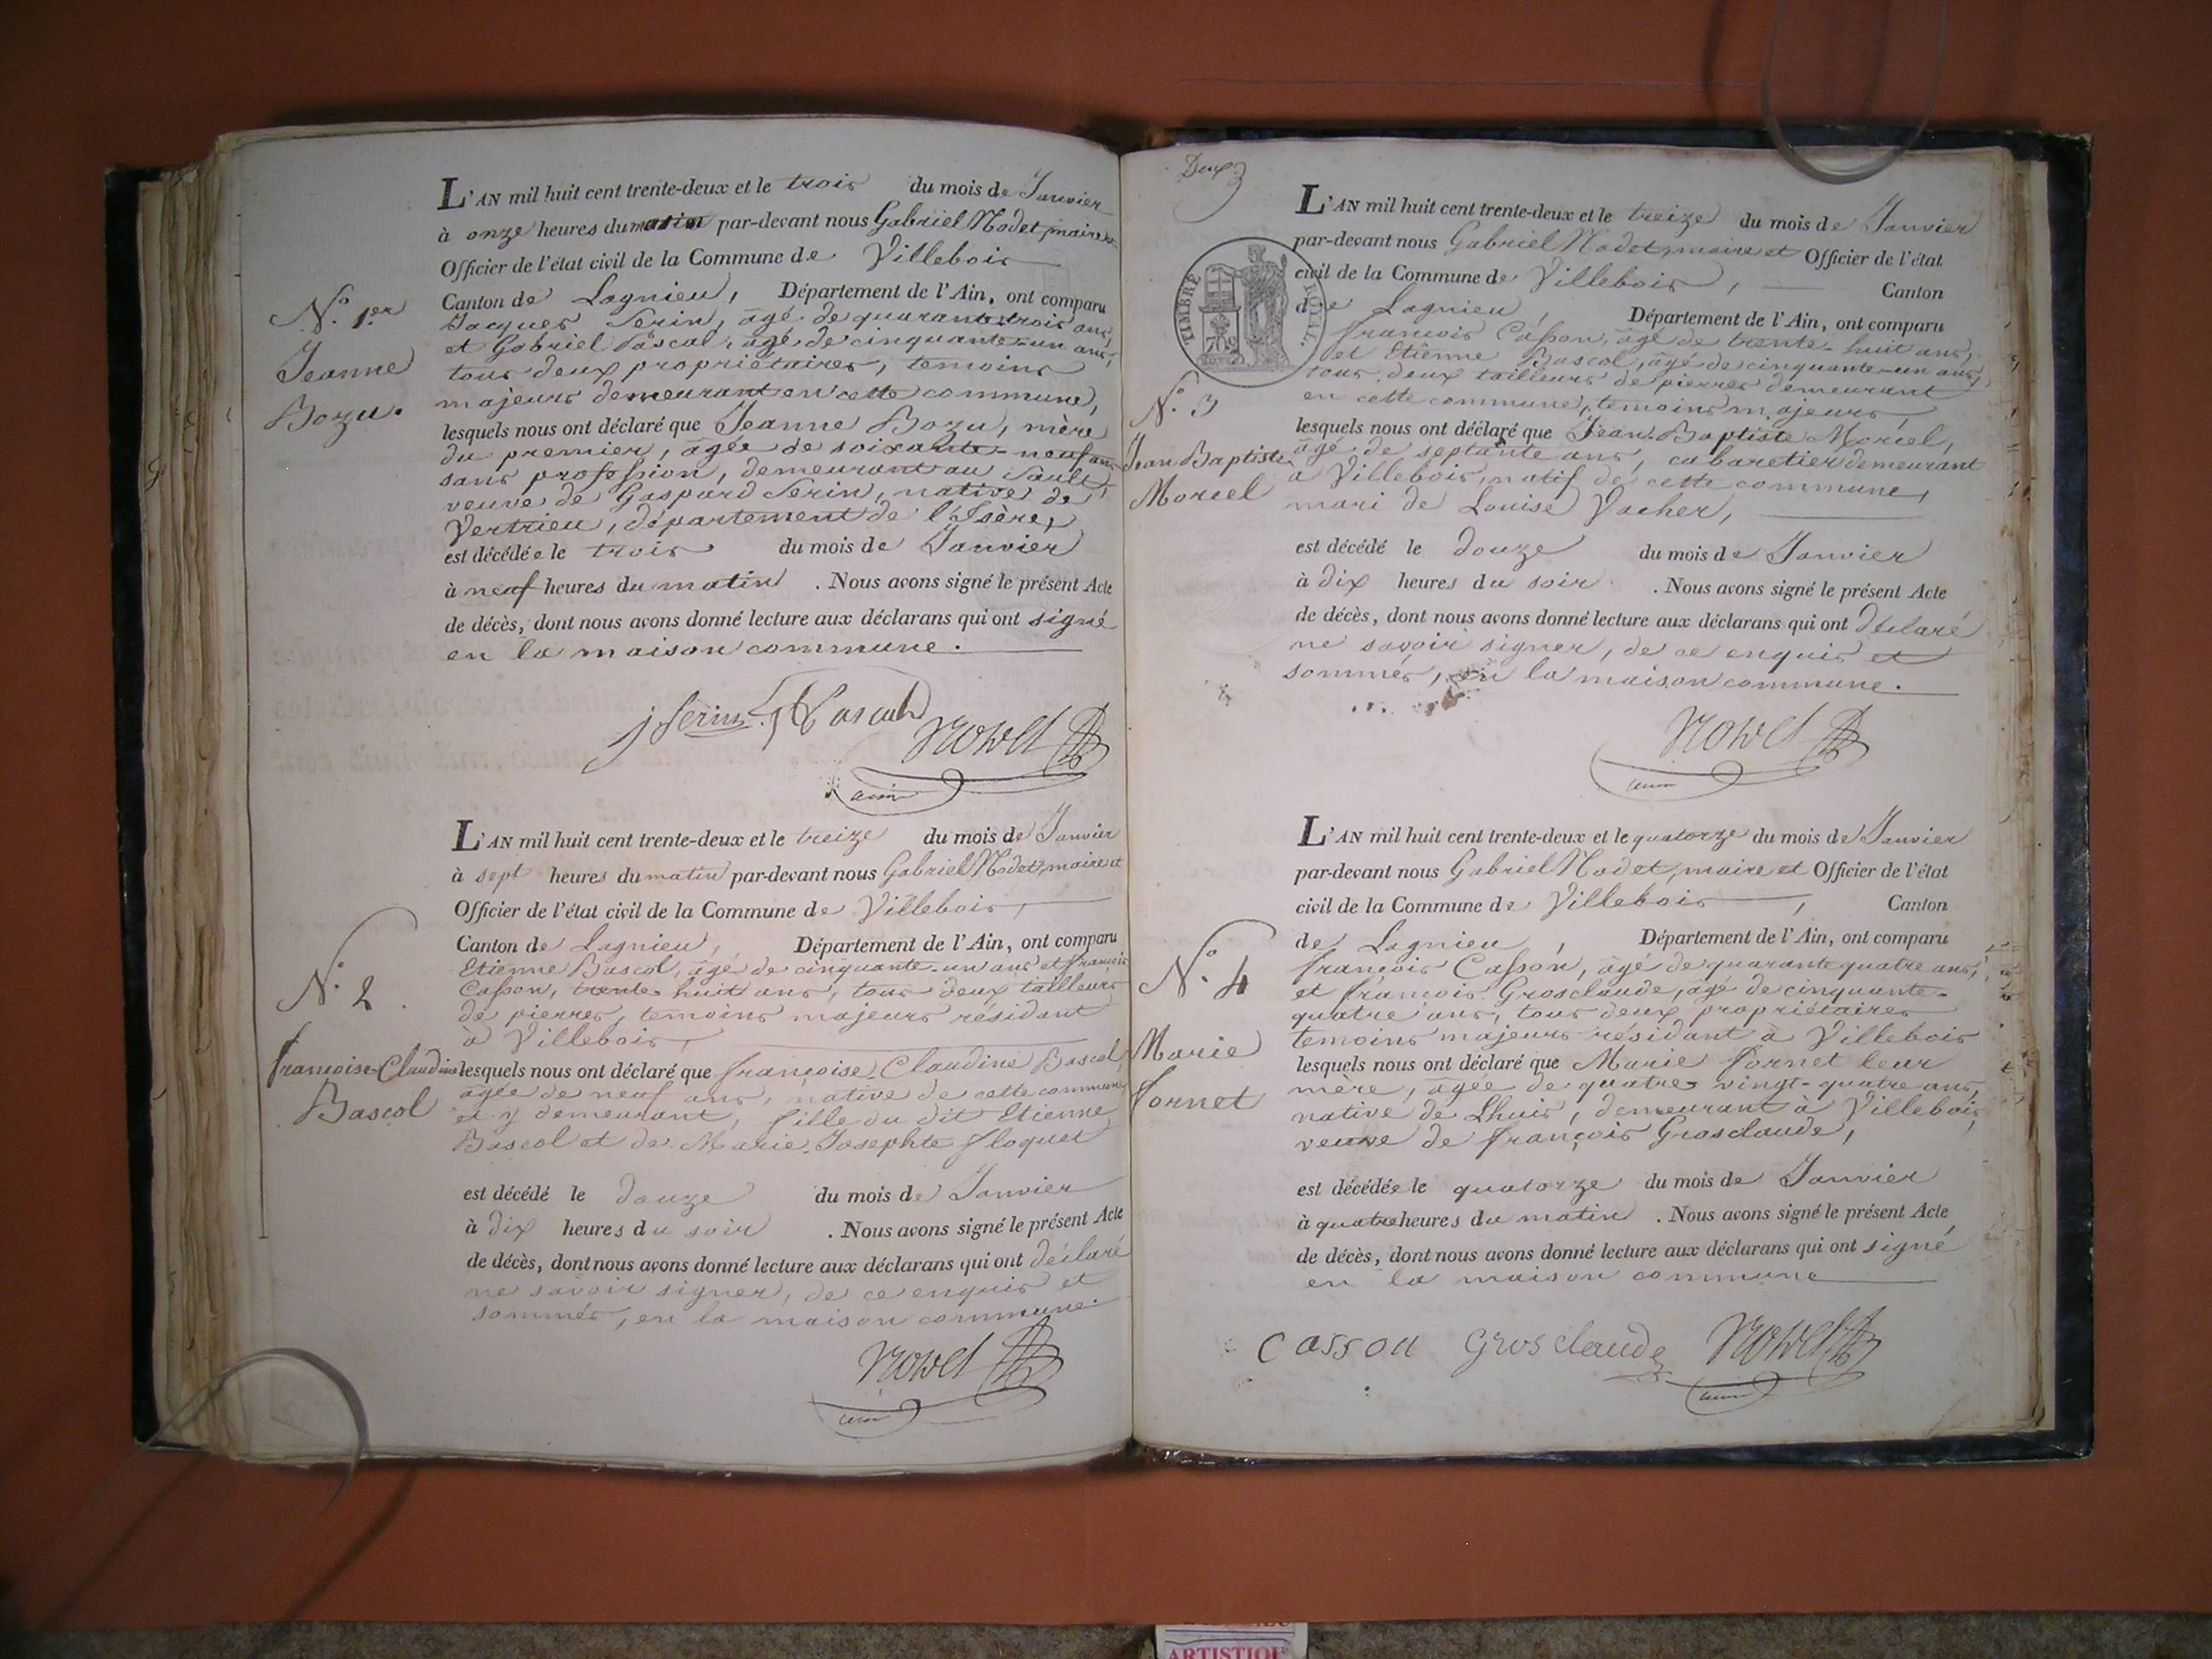 L'AN mil huit cent trente-deux et le trois du mois de Janvier
à onze heures du matin par-devant nous Gabriel Nodet, maire et
Officier de l'état civil de la Commune de Villebois
Canton de Lagnieu, Département de l'Ain, ont comparu
Jacques Serin, âgé de quarante-trois ans,
et Gabriel Pascal, âgé de cinquante-un ans,
tous deux propriétaires, temoins
majeurs demeurant en cette commune,
lesquels nous ont déclaré que Jeanne Bozu, mère
du premier, âgée de soixante-neuf ans
sans profession, demeurant au Sault,
veuve de Gaspard Serin, native de
Vertrieu, département de l'Isère,
est décédée le trois du mois de Janvier
à neuf heures du matin . Nous avons signé le présent Acte
de décès, dont nous avons donné lecture aux déclarans qui ont signé
en la maison commune.
N.° 1.er
Jeanne
Bozu.
j Serin g Pascal
L'AN mil huit cent trente-deux et le treize du mois de Janvier
à sept heures du matin par-devant nous Gabriel Nodet, maire et
Officier de l'état civil de la Commune de Villebois,
Canton de Lagnieu, Département de l'Ain, ont comparu
Etienne Bascol, âgé de cinquante-un ans et françois
Casson, trente-huit ans, tous deux tailleurs
de pierres, temoins majeurs résidant
à Villebois,
lesquels nous ont déclaré que françoise Claudine Bascol,
âgée de neuf ans, native de cette commune
et y demeurant, fille du dit Etienne
Bascol et de Marie Josephte floquet
est décédé le douze du mois de Janvier
à dix heures du soir . Nous avons signé le présent Acte
de décès, dont nous avons donné lecture aux déclarans qui ont déclaré
ne savoir signer, de ce enquis et
sommés, en la maison commune.
N.° 2
françoise-Claudine
Bascol
Deux
TIMBRE ROYAL.
L'AN mil huit cent trente-deux et le treize du mois de Janvier
par-devant nous Gabriel Nodet, maire et Officier de l'état
civil de la Commune de Villebois, Canton
de Lagnieu, Département de l'Ain, ont comparu
françois Casson, âgé de trente-huit ans,
et Etienne Bascol, âgé de cinquante-un ans,
tous deux tailleurs de pierres demeurant
en cette commune, temoins majeurs,
lesquels nous ont déclaré que Jean-Baptiste Morcel,
âgé de septante ans, cabaretier demeurant
à Villebois, natif de cette commune,
mari de Louise Vacher,
est décédé le douze du mois de Janvier
à dix heures du soir . Nous avons signé le présent Acte
de décès, dont nous avons donné lecture aux déclarans qui ont déclaré
ne savoir signer, de ce enquis et
sommés, en la maison commune.
N.° 3
Jean Baptiste
Morcel
L'AN mil huit cent trente-deux et le quatorze du mois de Janvier
par-devant nous Gabriel Nodet, maire et Officier de l'état
civil de la Commune de Villebois, Canton
de Lagnieu, Département de l'Ain, ont comparu
françois Casson, âgé de quarante quatre ans,
et françois Grosclaude, âgé de cinquante-
quatre ans, tous deux propriétaires
temoins majeurs résidant à Villebois
lesquels nous ont déclaré que Marie fornet leur
mère, âgée de quatre-vingt-quatre ans,
native de Lhuis, demeurant à Villebois,
veuve de françois Grosclaude,
est décédée le quatorze du mois de Janvier
à quatre heures du matin . Nous avons signé le présent Acte
de décès, dont nous avons donné lecture aux déclarans qui ont signé
en la maison commune
N.° 4
Marie
fornet
Casson Grosclaude
ARTISTIQU